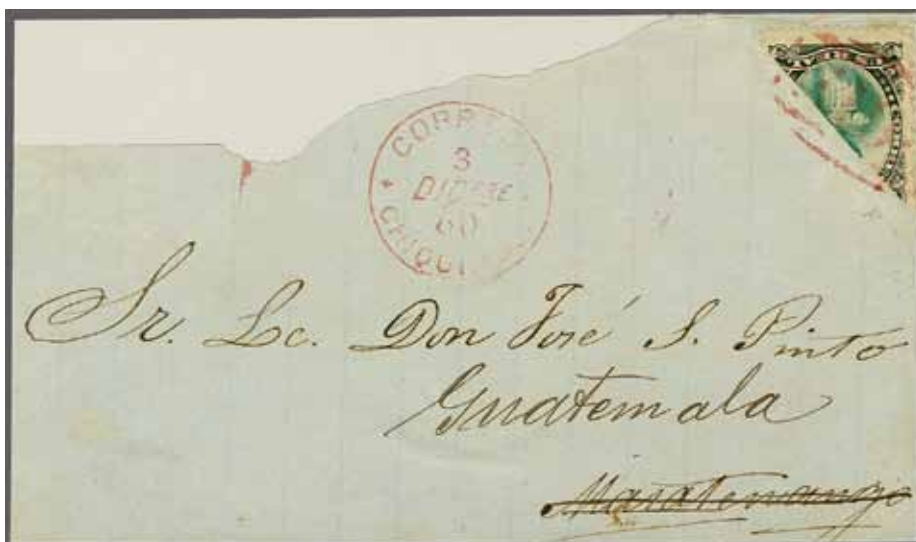 CORR
3
DICBRE
80
CHIQUI
Sr. Lc. Don José S. Pinto
Guatemala
Masatenango